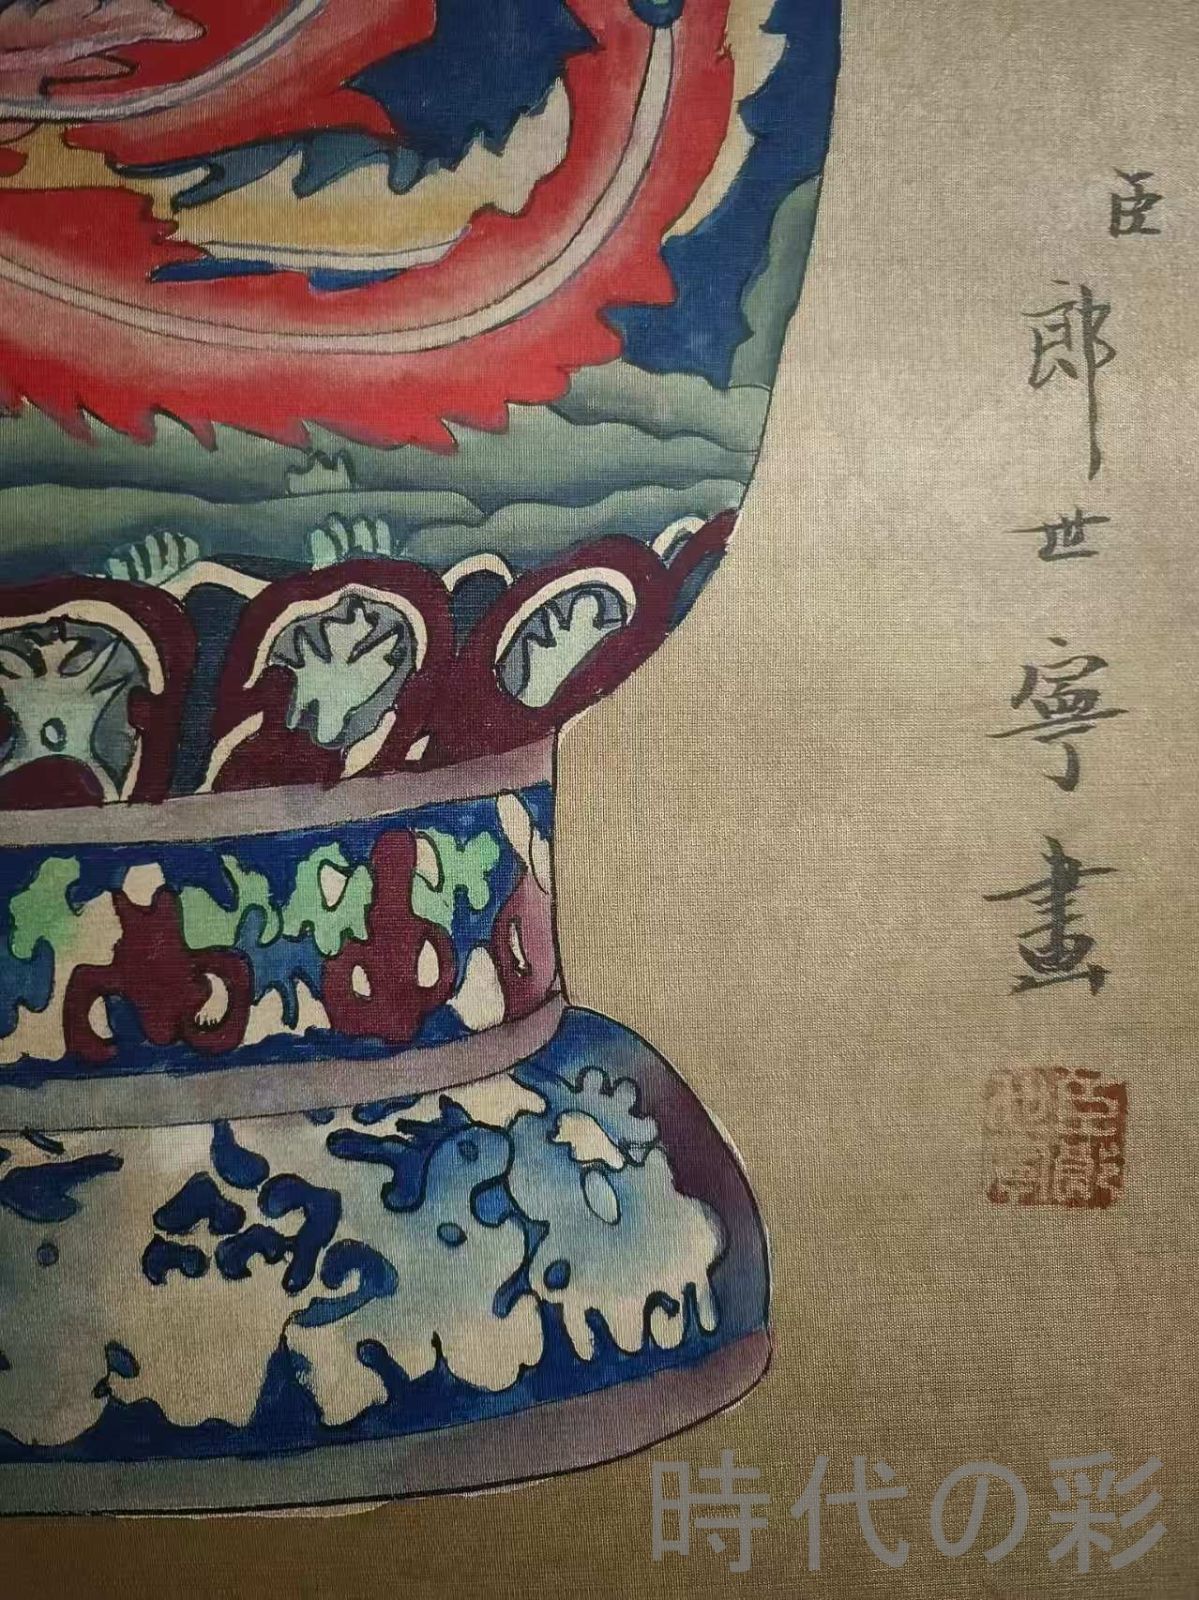 臣郎世寧畫
時代の彩